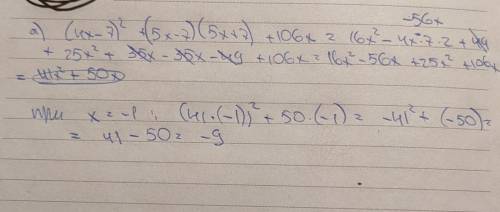 -56x
a) (4x-7)² + (5x-7)(5x+7) + 106x = 16x² - 4x·7·2 + 49
+ 25x² + 35x - 35x - 49 + 106x = 16x² - 56x + 25x² + 106x
= 41x² + 50x
при x = -1 : (41·(-1))² + 50·(-1) = -41² + (-50) =
= 41 - 50 = -9